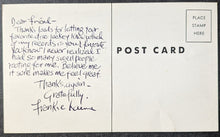 Dear Friend—
Thanks loads for letting your
favorite disc jockey know which
of my records is your favorite.
You know I never realized I
had so many swell people
rooting for me. Believe me
it sure makes me feel great.
Thanks again—
Gratefully,
Frankie
POST CARD
PLACE
STAMP
HERE